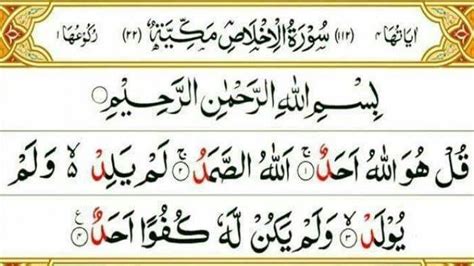 اٰيَاتُهَا ٤ (١١٢) سُوْرَةُ الْاِخْلَاصِ مَكِّيَّةٌ (٢٢) رُكُوْعُهَا ١
بِسْمِ اللهِ الرَّحْمٰنِ الرَّحِيْمِ ○
قُلْ هُوَ اللهُ اَحَدٌ ۚ ١ اَللهُ الصَّمَدُ ۚ ٢ لَمْ يَلِدْ ۙ ٥ وَلَمْ
يُوْلَدْ ۙ ٣ وَلَمْ يَكُنْ لَّهٗ كُفُوًا اَحَدٌ ع ٤